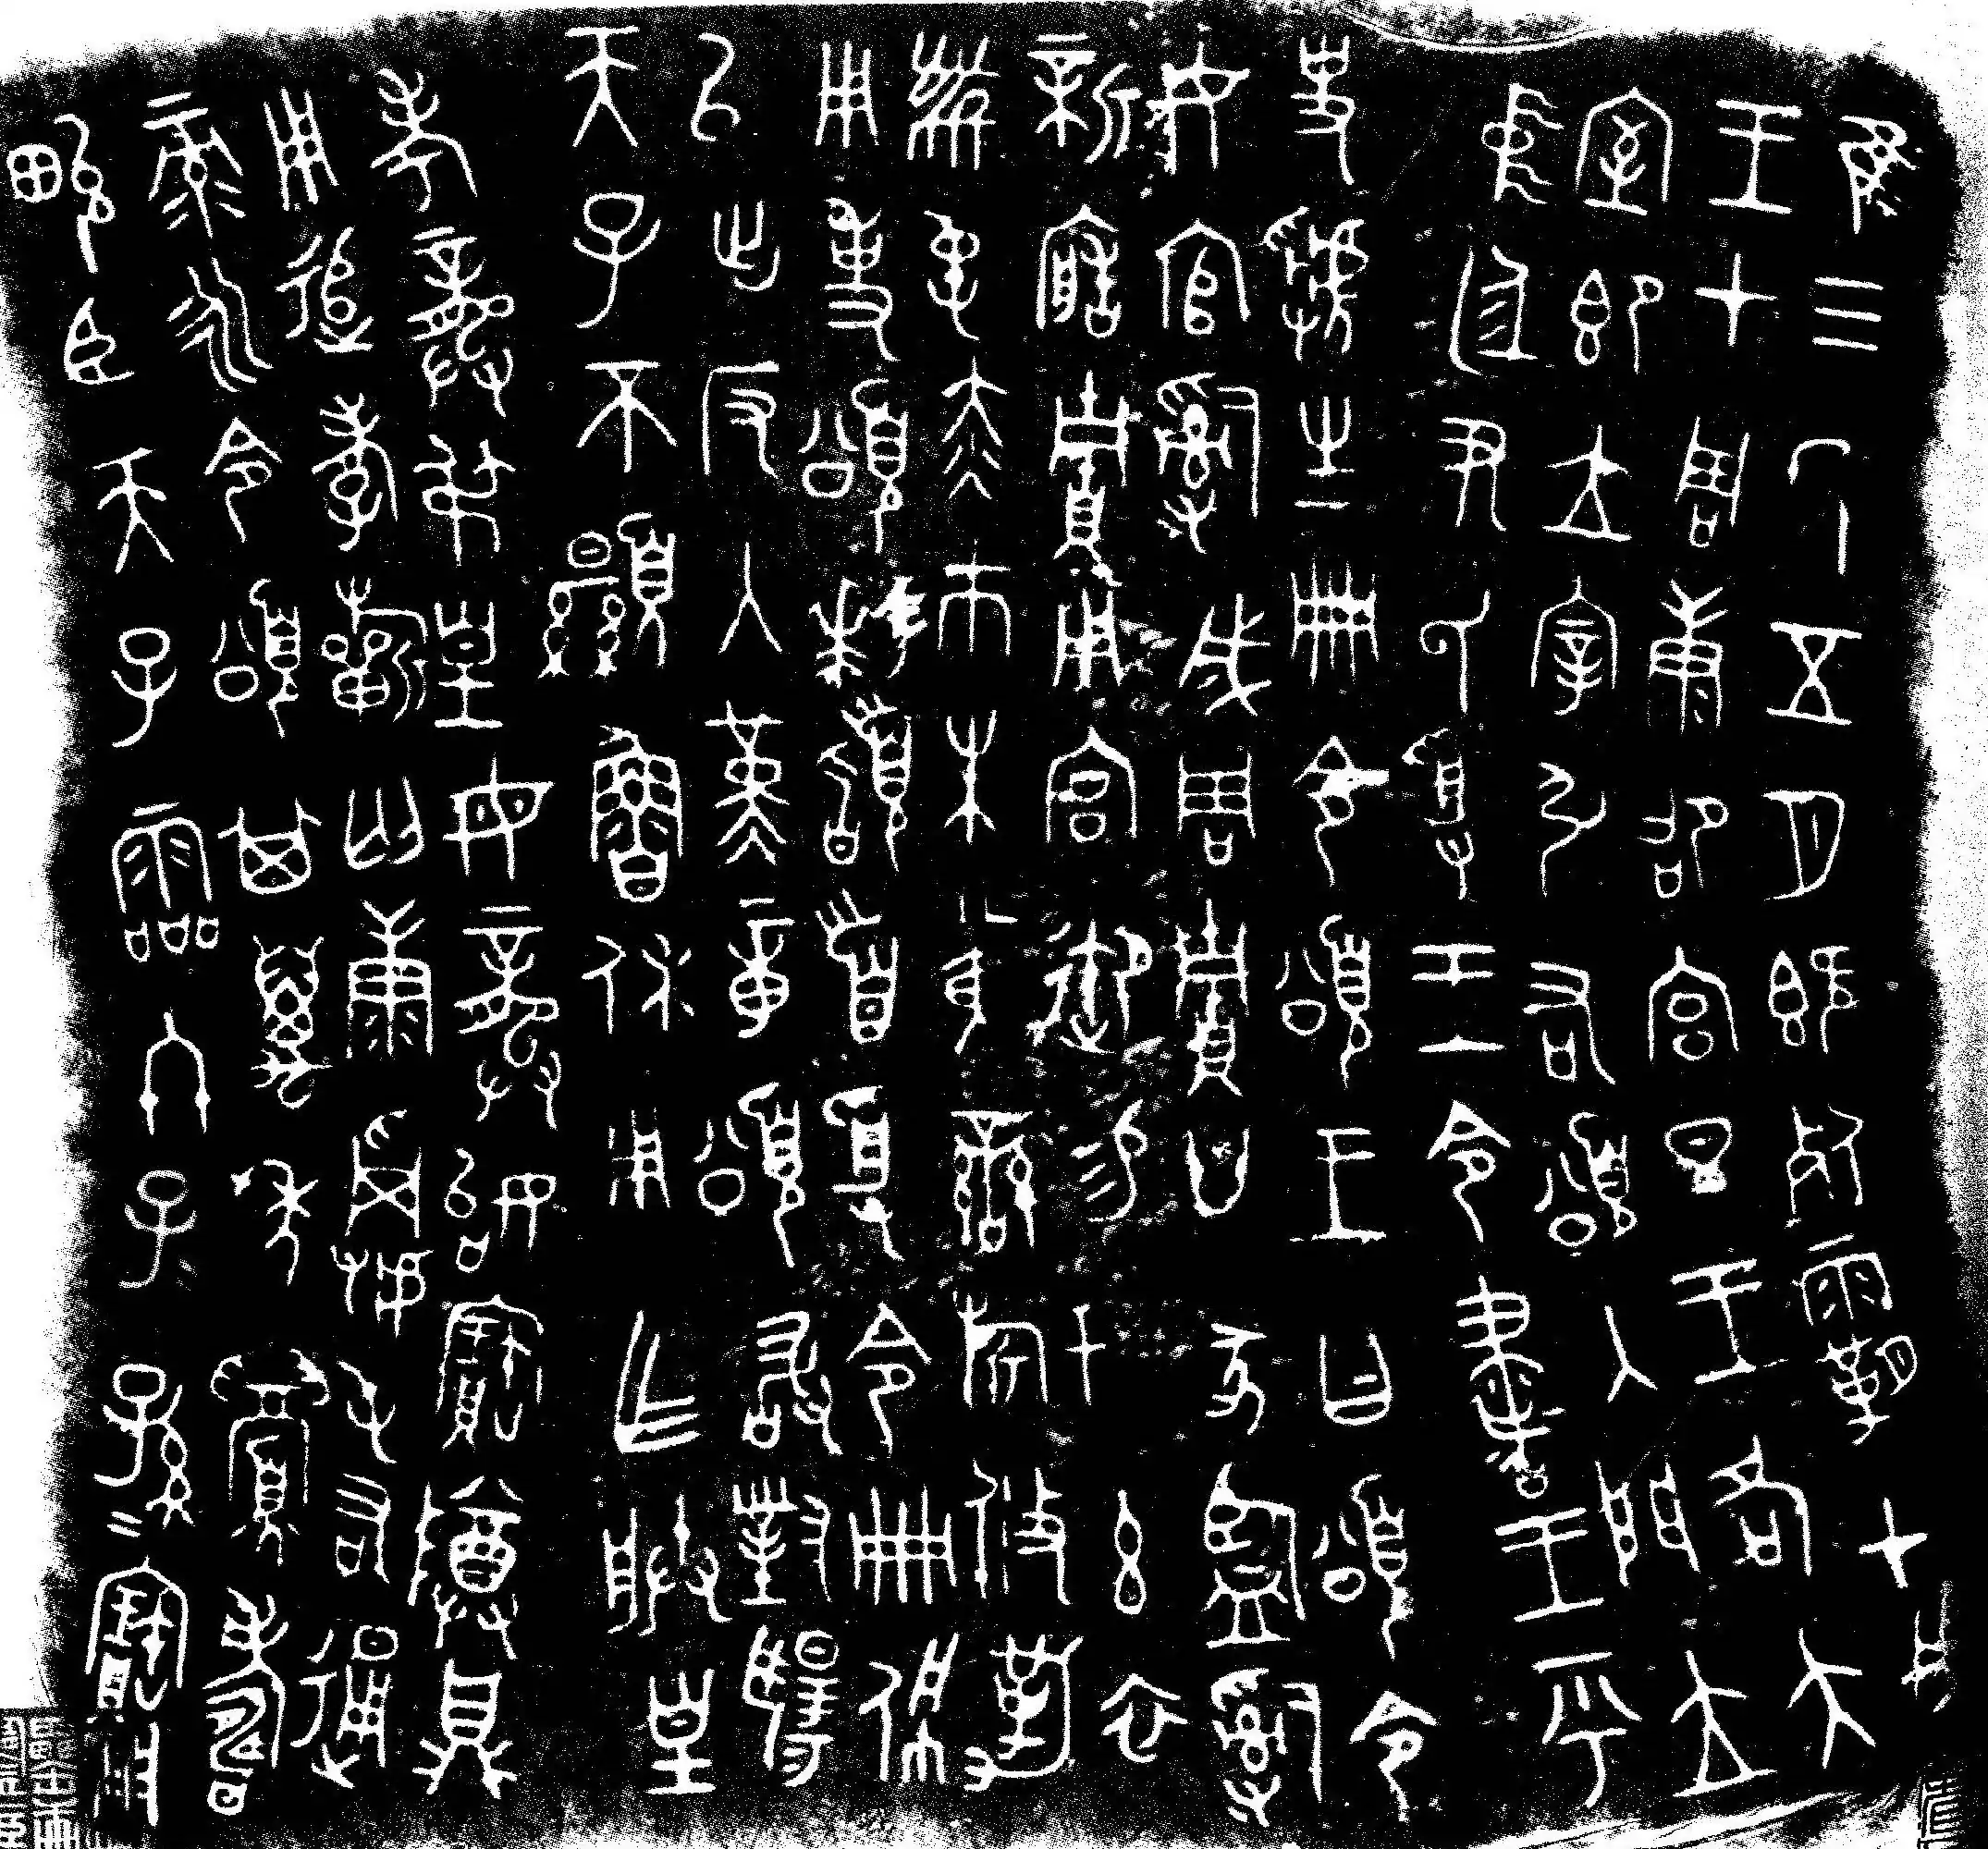 隹三年五月既死霸甲戌
王才周康卲宮旦王各大
室即立宰引右頌入門立
中廷尹氏受王令書王乎
史虢生冊令頌王曰頌令
女官𤔲成周貯廿家監𤔲
新造貯用宮御易女玄衣
黹屯赤巿朱黃䜌旂攸勒
用事頌拜䭫首受令冊佩
㠯出反入堇章頌敢對揚
天子不顯魯休用乍朕皇
考龏弔皇母龏姒寶尊鼎
用追孝𣄨匄康𩛥屯右通
彔永令頌其萬年眉壽
畯臣天子霝冬子子孫孫寶用